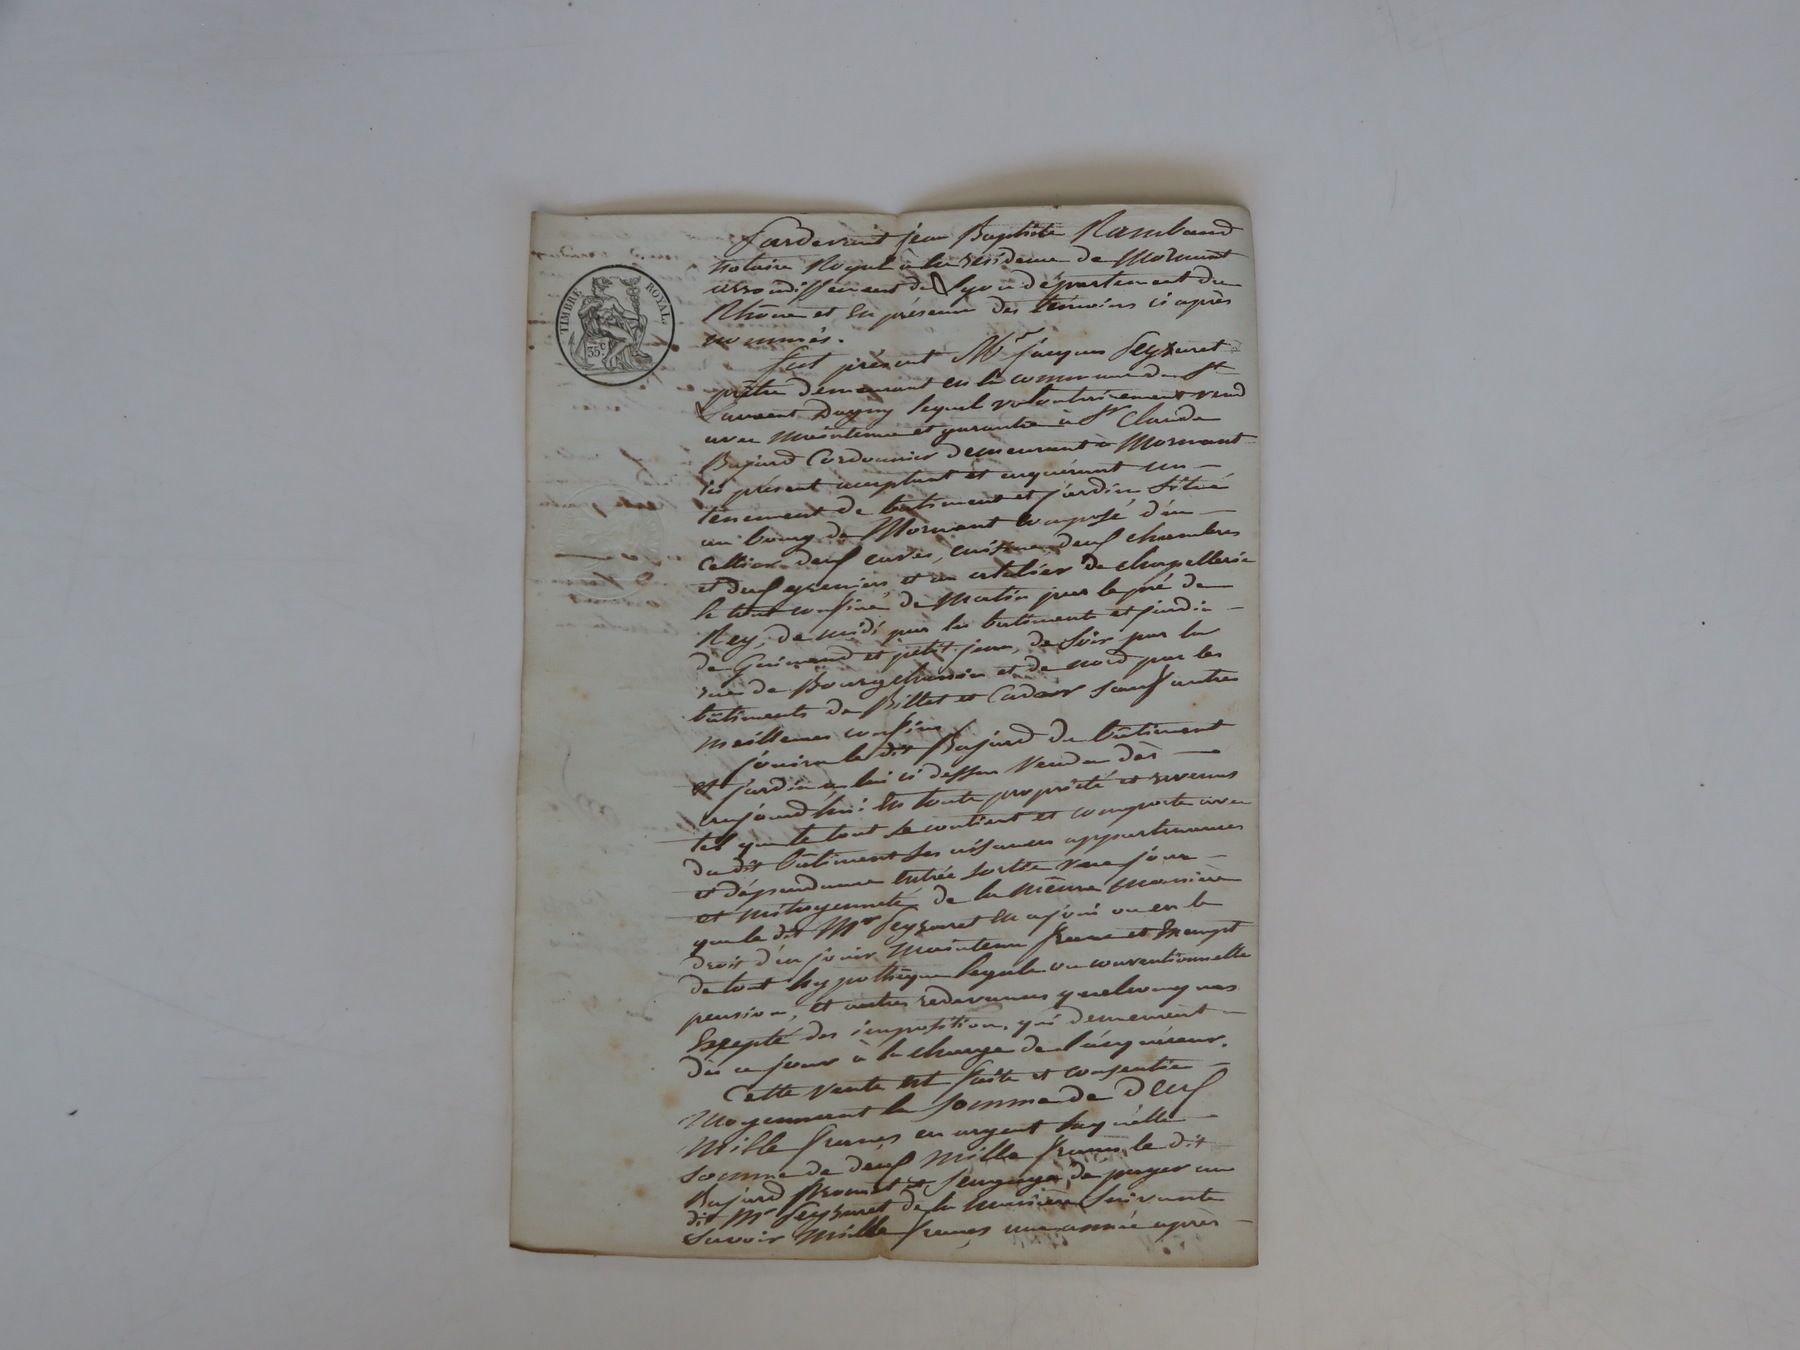 TIMBRE ROYAL
35 c
Pardevant jean Baptiste Rambaud
notaire Royal à la residence de Mornant
arrondissement de Lyon département du
Rhône et En présence des témoins ci après
nommés.
Fut présent Mr jacques Peyzaret
prêtre demeurant en la commune de St
Laurent Dagny lequel volontairement vend
avec maintenue et garantie à Sr Claude
Bajard Cordonnier demeurant à Mornant
ici présent acceptant et acquérant un
tenement de batiment et jardin situé
au bourg de Mornant composé d'un
Cellier deux caves, cuisine deux chambres
et deux greniers et un attelier de chapellerie
le tout confiné de matin par le pré de
Rey, de midi par les batiments et jardin
de Guinand et petit jean, de soir par la
rue de Bourgchanin et de nord par les
bâtiments de Billet et sauf autres
meilleures confins.
jouira le dit Bajard du bâtiment
et jardin à lui ci dessus vendu dès
aujourd'hui En toute propriété et revenus
tel que le tout se contient et comporte avec
du dit bâtiment ses aisances appartenances
et dépendance Entrée sortie vue jour
et mitoyenneté, de la même manière
que le dit Mr Peyzaret En a joui ou eu le
droit d'en jouir maintenu franc et Exempt
de tout hypothèque legale ou conventionnelle
pension, et autres redevances quelconques
Excepté des imposition, qui demeurent
dès ce jour à la charge de l'acquéreur.
Cette vente est faite et consentie
moyennant la somme de deux
mille francs en argent laquelle
somme de deux mille francs le dit
Bajard promet et s'engage de payer au
dit Mr Peyzaret de la manière suivante
Savoir mille francs une année après